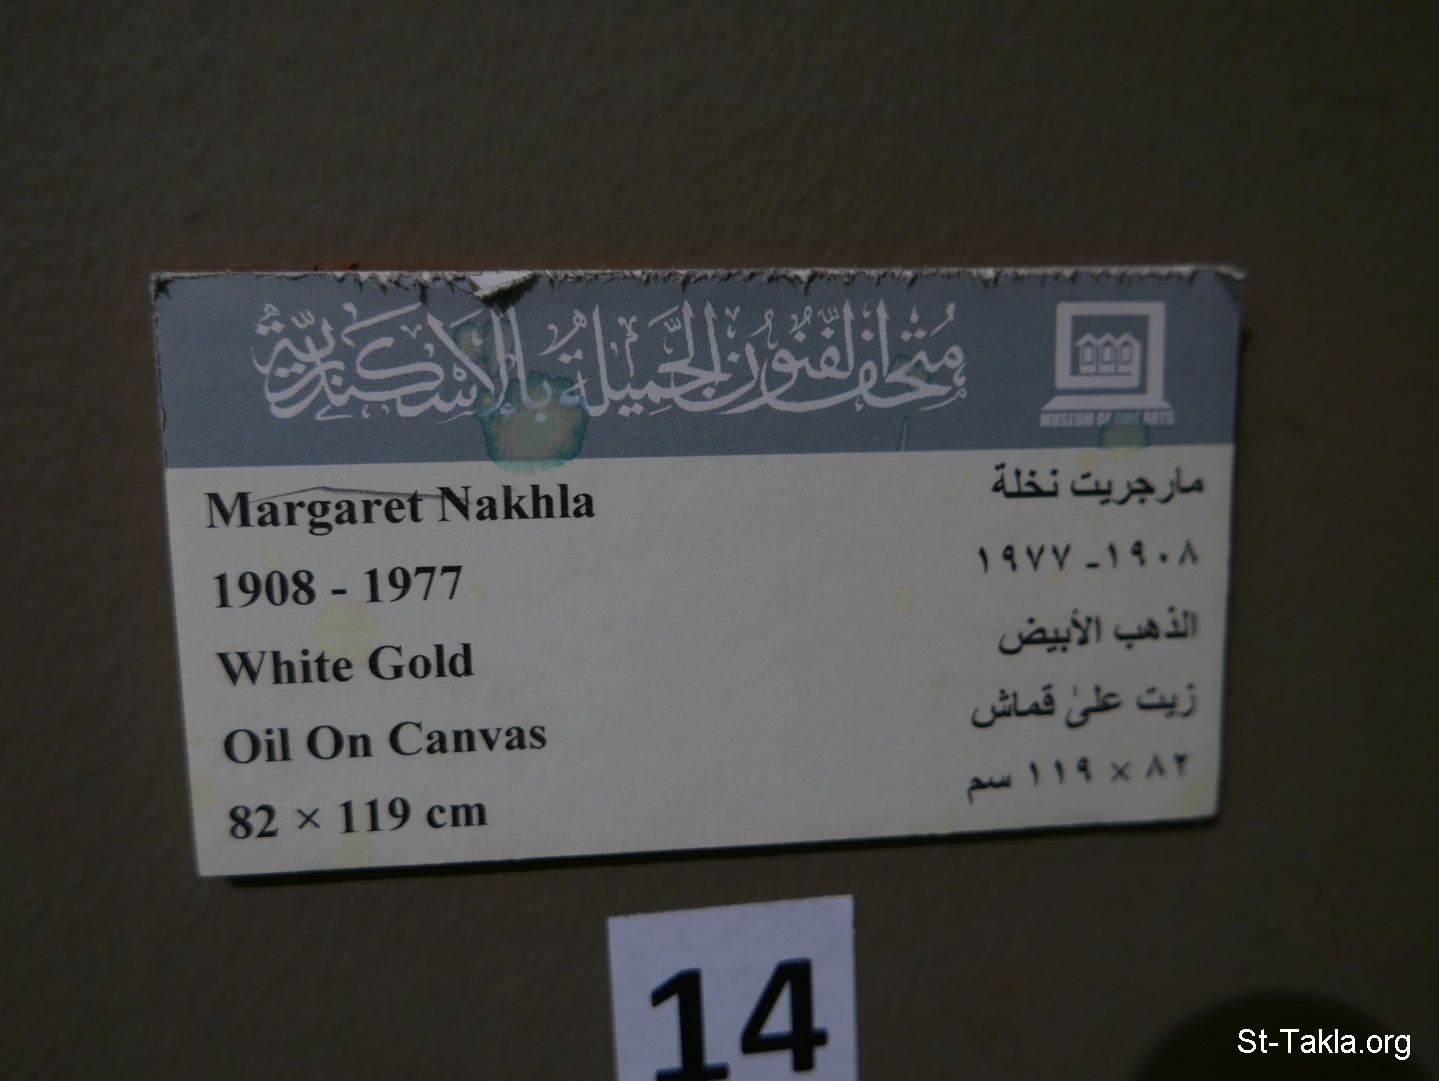 متحف الفنون الجميلة بالإسكندرية
MUSEUM OF FINE ARTS
Margaret Nakhla
1908 - 1977
White Gold
Oil On Canvas
82 × 119 cm
مارجريت نخلة
١٩٠٨ـ ١٩٧٧
الذهب الأبيض
زيت على قماش
٨٢ × ١١٩ سم
14
St-Takla.org